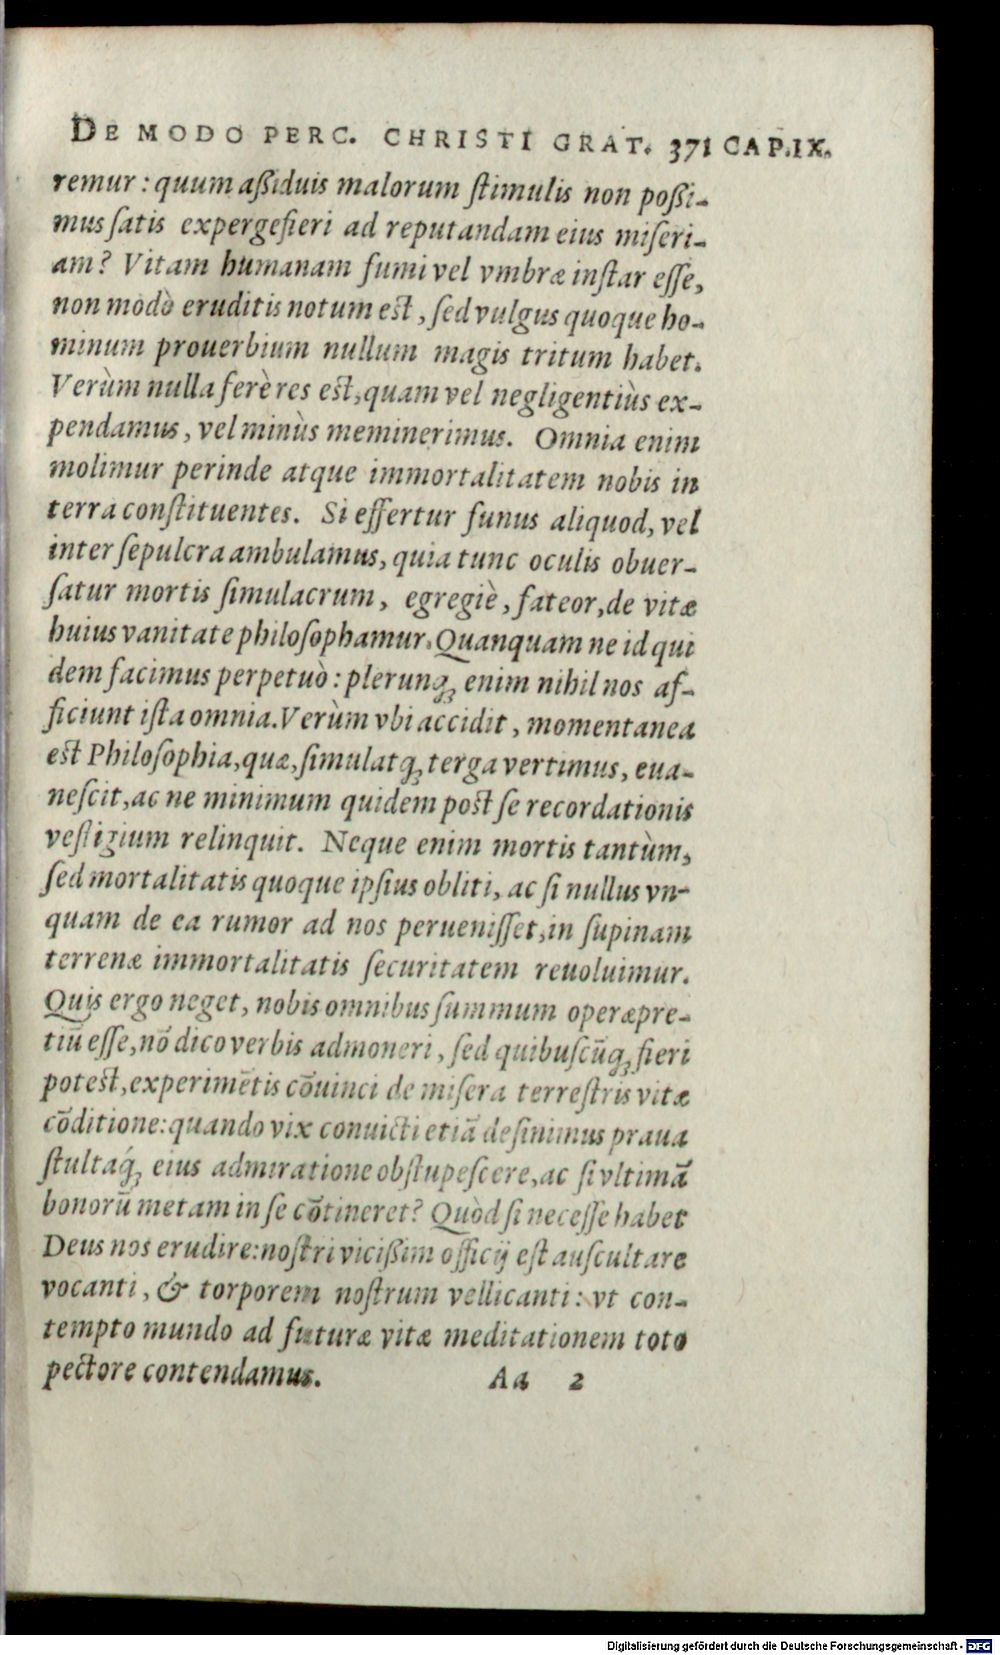 DE MODO PERC. CHRISTI GRAT. 371 CAP.IX.
remur: quum aßiduis malorum ſtimulis non poßi-
mus ſatis expergefieri ad reputandam eius miſeri-
am? Vitam humanam fumi vel vmbræ inſtar eſſe,
non modò eruditis notum eſt, ſed vulgus quoque ho-
minum prouerbium nullum magis tritum habet.
Verùm nulla ferè res eſt, quam vel negligentiùs ex-
pendamus, vel minùs meminerimus. Omnia enim
molimur perinde atque immortalitatem nobis in
terra conſtituentes. Si effertur funus aliquod, vel
inter ſepulcra ambulamus, quia tunc oculis obuer-
ſatur mortis ſimulacrum, egregiè, fateor, de vitæ
huius vanitate philoſophamur. Quanquam ne id qui
dem facimus perpetuò: plerunq́; enim nihil nos af-
ficiunt iſta omnia. Verùm vbi accidit, momentanea
eſt Philoſophia, quæ, ſimulatq́; terga vertimus, eua-
neſcit, ac ne minimum quidem poſt ſe recordationis
veſtigium relinquit. Neque enim mortis tantùm,
ſed mortalitatis quoque ipſius obliti, ac ſi nullus vn-
quam de ea rumor ad nos perueniſſet, in ſupinam
terrenæ immortalitatis ſecuritatem reuoluimur.
Quis ergo neget, nobis omnibus ſummum operæpre-
tiū eſſe, nō dico verbis admoneri, ſed quibuſcūq́; fieri
poteſt, experimētis cōuinci de miſera terreſtris vitæ
cōditione: quando vix conuicti etiā deſinimus praua
ſtultaq́; eius admiratione obſtupeſcere, ac ſi vltimā
bonorū metam in ſe cōtineret? Quòd ſi neceſſe habet
Deus nos erudire: noſtri vicißim officij eſt auſcultare
vocanti, & torporem noſtrum vellicanti: vt con-
tempto mundo ad futuræ vitæ meditationem toto
pectore contendamus.
Aa 2
Digitalisierung gefördert durch die Deutsche Forschungsgemeinschaft - DFG